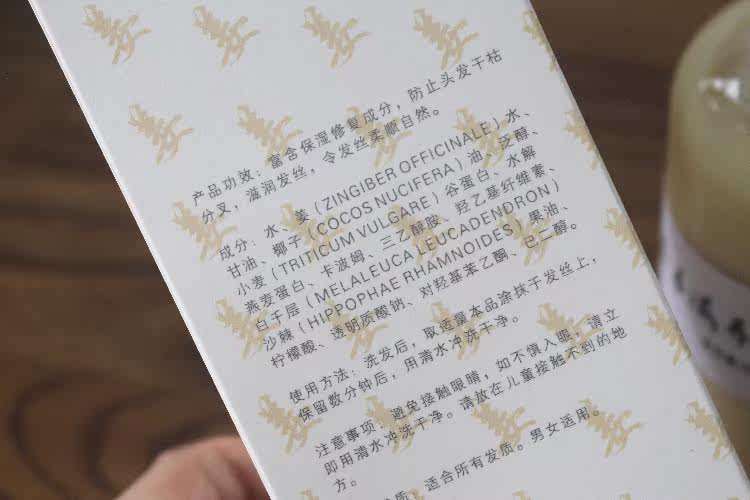 产品功效：富含保湿修复成分，防止头发干枯
分叉，滋润发丝，令发丝柔顺自然。
成分：水、姜（ZINGIBER OFFICINALE）水、
甘油、椰子（COCOS NUCIFERA）油、泛醇、
小麦（TRITICUM VULGARE）谷蛋白、水解
燕麦蛋白、卡波姆、三乙醇胺、羟乙基纤维素、
白千层（MELALEUCA LEUCADENDRON）
沙棘（HIPPOPHAE RHAMNOIDES）果油、
柠檬酸、透明质酸钠、对羟基苯乙酮、己二醇。
使用方法：洗发后，取适量本品涂抹于发丝上，
保留数分钟后，用清水冲洗干净。
注意事项：避免接触眼睛，如不慎入眼，请立
即用清水冲洗干净。请放在儿童接触不到的地
方。
质：适合所有发质。男女适用。